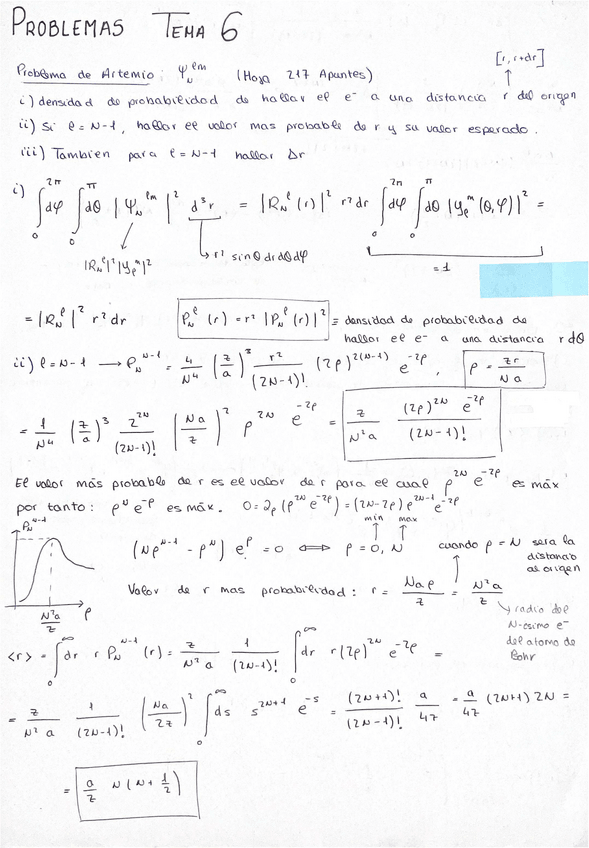 PROBLEMAS TEMA 6
Problema de Artemio: Ψ_N^{lm} (Hoja 217 Apuntes) [r, r+dr]
i) densidad de probabilidad de hallar el e⁻ a una distancia r del origen
ii) Si l = N-1, hallar el valor mas probable de r y su valor esperado.
iii) Tambien para l = N-1 hallar Δr
i) ∫_0^{2π} dφ ∫_0^π dθ |Ψ_N^{lm}|² d³r = |R_N^l (r)|² r² dr ∫_0^{2π} dφ ∫_0^π dθ |Y_l^m (θ,φ)|² =
|R_N^l|² |Y_l^m|² r² sinθ dr dθ dφ = 1
= |R_N^l|² r² dr P_N^l (r) = r² |P_N^l (r)|² ≡ densidad de probabilidad de
hallar el e⁻ a una distancia r dθ
ii) l = N-1 → P_N^{N-1} = 4/N⁴ (z/a)³ r²/(2N-1)! (2ρ)^{2(N-1)} e^{-2ρ}, ρ = zr/Na
= 1/N⁴ (z/a)³ 2^{2N}/(2N-1)! (Na/z)² ρ^{2N} e^{-2ρ} = z/N²a (2ρ)^{2N} e^{-2ρ}/(2N-1)!
El valor más probable de r es el valor de r para el cual ρ^{2N} e^{-2ρ} es máx
por tanto: ρ^N e^{-ρ} es máx. 0 = ∂_ρ (ρ^{2N} e^{-2ρ}) = (2N-2ρ) ρ^{2N-1} e^{-2ρ}
P_N^{N-1} min max
(Nρ^{N-1} - ρ^N) e^ρ = 0 ⟺ ρ = 0, N cuando ρ = N sera la
distancia
al origen
Valor de r mas probabilidad: r = Naρ/z = N²a/z
N²a/z ρ
radio del
N-esimo e⁻
del atomo de
Bohr
<r> = ∫_0^∞ dr r P_N^{N-1} (r) = z/N²a 1/(2N-1)! ∫_0^∞ dr r (2ρ)^{2N} e^{-2ρ} =
= z/N²a 1/(2N-1)! (Na/2z)² ∫_0^∞ ds s^{2N+1} e^{-s} = (2N+1)!/(2N-1)! a/4z = a/4z (2N+1) 2N =
= a/z N (N + 1/2)